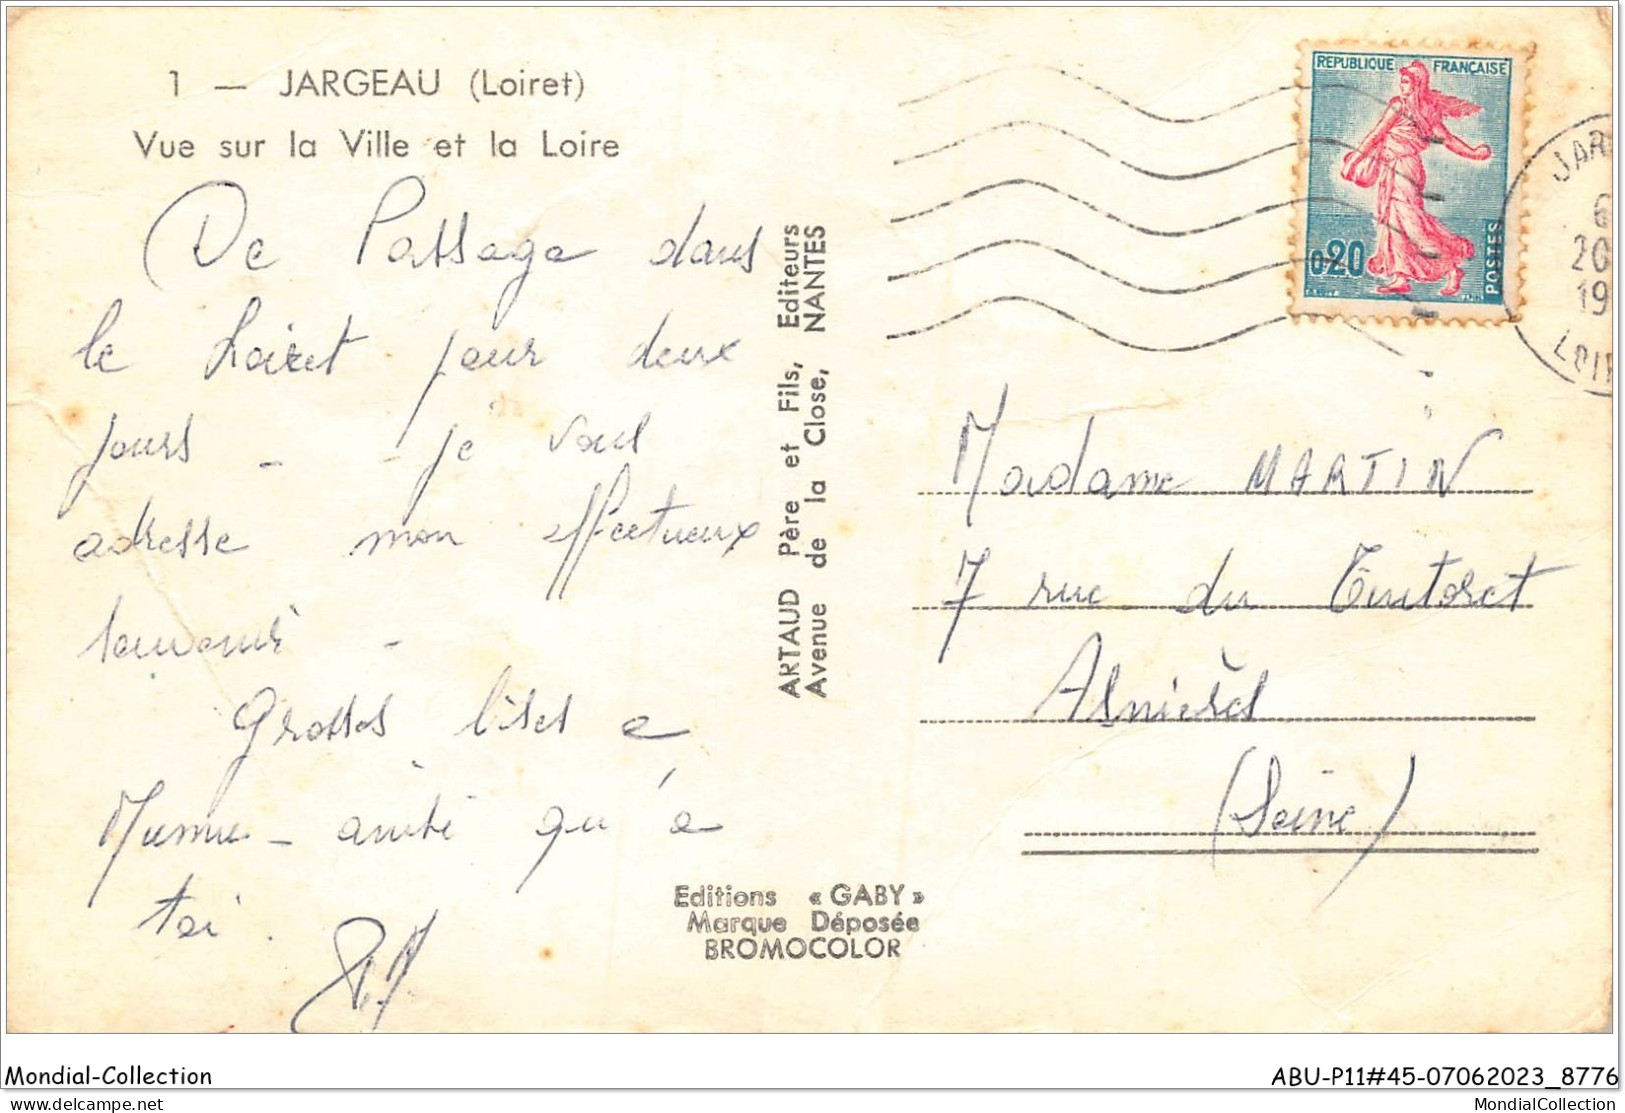 1 — JARGEAU (Loiret)
Vue sur la Ville et la Loire
De Passage dans
le Loiret pour deux
jours - je vous
adresse mon affectueux
souvenir -
Grosses bises a
Mumu - ainsi qu'a
toi.
ARTAUD Père et Fils, Editeurs
Avenue de la Close, NANTES
Editions « GABY »
Marque Déposée
BROMOCOLOR
REPUBLIQUE FRANÇAISE
0,20
POSTES
JAR
6
20
19
LOIR
Madame MARTIN
7 rue du Tintoret
Asnières
(Seine)
Mondial-Collection
ABU-P11#45-07062023_8776
delcampe.net
MondialCollection